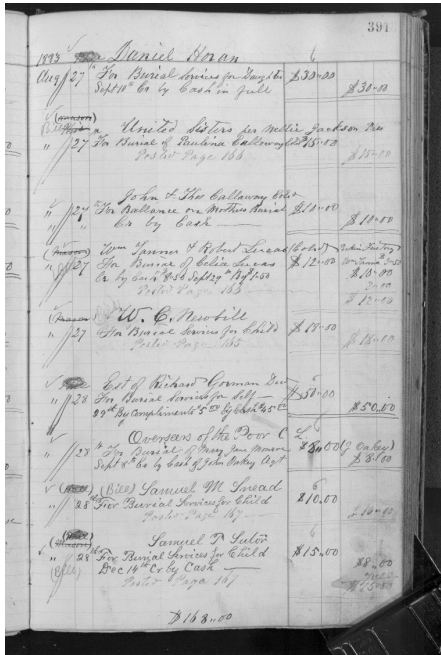 391
1893 Daniel Horan
Aug 27 " For Burial Services for Daughter $30.00
Sept 10th Cr by Cash in full $30.00
United Sisters per Nellie Jackson Pres
" 27 For Burial of Paulina Calloway Cold $15.00 $15.00
Posted Page 166
John & Thos Calloway Cold
" 27 " For Ballance on Mothers Burial $10.00
" " Cr by Cash — $10.00
Wm Tanner & Robert Lucas (Cold)
" 27 For Burial of Celia Lucas $12.00
Cr by Cash Sept 29th $12.00
Posted Page 165
W. C. Newbill
" 27 For Burial Services for Child $18.00 $18.00
Posted Page 165
Est of Richard Gorman Decd
" 28 For Burial Services for Self — $50.00
29th By Compliments $5.00 by Cash $45.00 $50.00
Overseers of the Poor C
" 28 " For Burial of Mary Jane $8.00 (J Oakey)
Sept 8th Cr by Cash of John Oakey Agt $8.00
(Bill) Samuel M. Snead
" 28 For Burial Services for Child $10.00 $10.00
Posted Page 167
Samuel T Sutor
" 28 For Burial Services for Child $15.00
Dec 14th Cr by Cash — $8.00
Posted Page 167 $15.00
$168.00